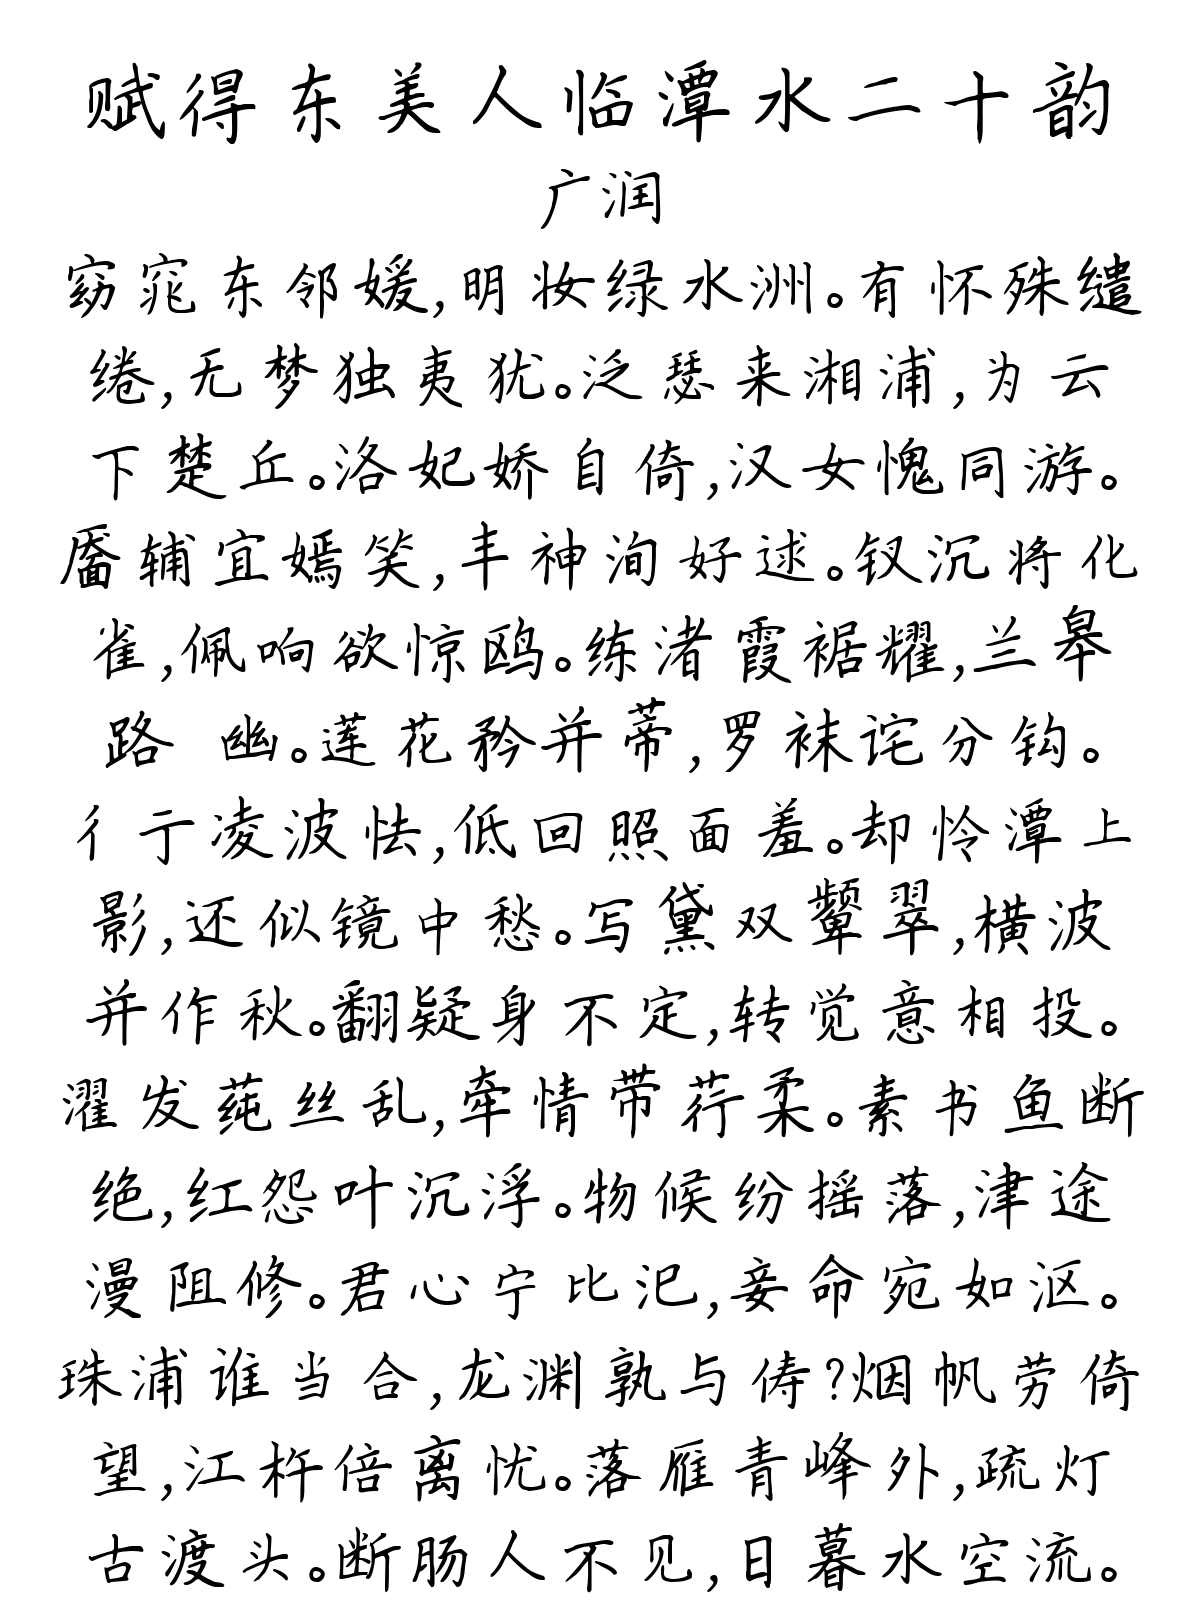 赋得东美人临潭水二十韵
广润
窈窕东邻媛,明妆绿水洲。有怀殊缱
绻,无梦独夷犹。泛瑟来湘浦,为云
下楚丘。洛妃娇自倚,汉女愧同游。
靥辅宜嫣笑,丰神洵好逑。钗沉将化
雀,佩响欲惊鸥。练渚霞裾耀,兰皋
路 幽。莲花矜并蒂,罗袜诧分钩。
彳亍凌波怯,低回照面羞。却怜潭上
影,还似镜中愁。写黛双颦翠,横波
并作秋。翻疑身不定,转觉意相投。
濯发莼丝乱,牵情带荇柔。素书鱼断
绝,红怨叶沉浮。物候纷摇落,津途
漫阻修。君心宁比汜,妾命宛如沤。
珠浦谁当合,龙渊孰与俦?烟帆劳倚
望,江杵倍离忧。落雁青峰外,疏灯
古渡头。断肠人不见,日暮水空流。